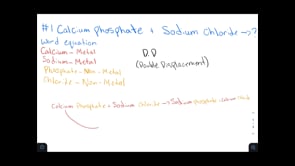 #1 Calcium Phosphate + Sodium Chloride → ?
Word equation
Calcium - Metal
D.D
Sodium - Metal
(Double Displacement)
Phosphate - Non-Metal
Chloride - Non-Metal
Calcium Phosphate + Sodium Chloride → Sodium Phosphate + Calcium